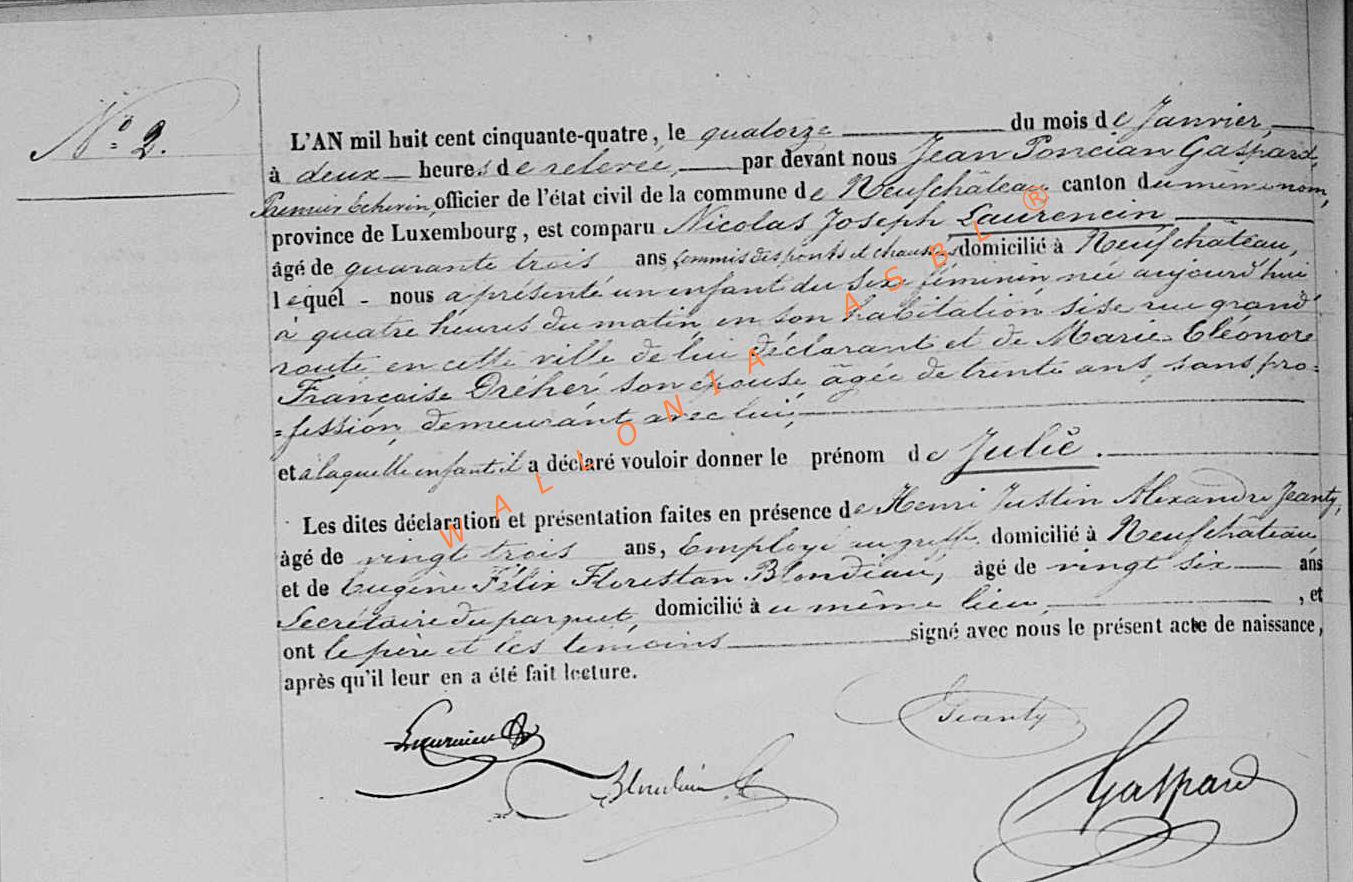 N° 2.
L'AN mil huit cent cinquante-quatre, le quatorze du mois de Janvier,
à deux heures de relevée, par devant nous Jean Poncian Gaspard,
Premier Echevin, officier de l'état civil de la commune de Neufchâteau canton du même nom,
province de Luxembourg, est comparu Nicolas Joseph Laurencin
âgé de quarante trois ans, Commis des ponts et chaussées domicilié à Neufchâteau,
lequel nous a présenté un enfant du sexe féminin née aujourd'hui
à quatre heures du matin en son habitation sise rue grand'
route en cette ville de lui déclarant et de Marie Eléonore
Françoise Dreher son epouse âgée de trente ans, sans pro=
=fession, demeurant avec lui,
et à laquelle enfant il a déclaré vouloir donner le prénom de Julie.
Les dites déclaration et présentation faites en présence de Henri Justin Alexandre Jeanty,
âgé de vingt trois ans, Employé au greffe domicilié à Neufchâteau
et de Eugène Félix Florestan Blondiau, âgé de vingt six ans
Secrétaire du parquet, domicilié à même lieu, , et
ont le père et les témoins signé avec nous le présent acte de naissance,
après qu'il leur en a été fait lecture.
Jeanty
Gaspard
WALLONIA ASBL ®